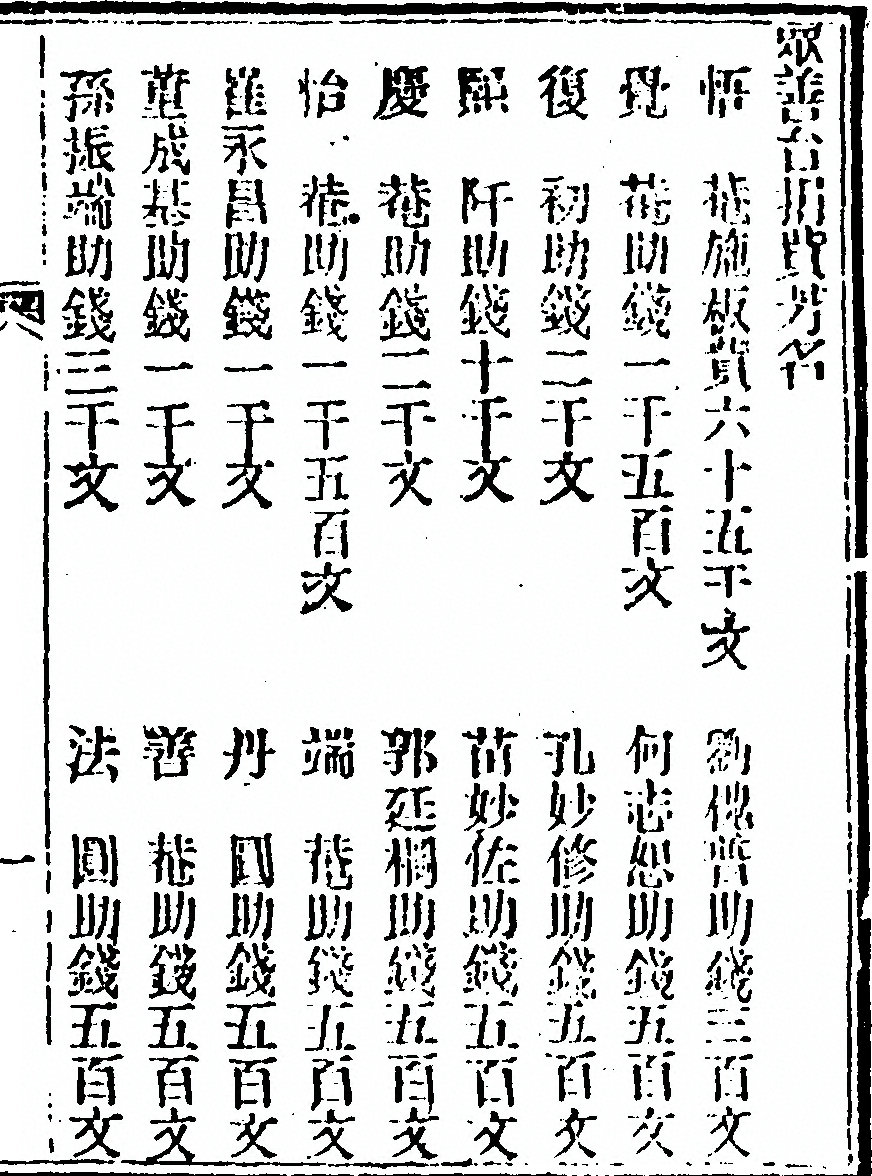 眾善台捐費芳名
悟菴施板費六十五千文
覺菴助錢一千五百文
復初助錢二千文
熙阡助錢十千文
慶菴助錢二千文
怡菴助錢一千五百文
崔永昌助錢一千文
董成基助錢一千文
孫振端助錢三千文
劉傀普助錢三百文
何志恕助錢五百文
孔妙修助錢五百文
苗妙佐助錢五百文
郭廷棡助錢五百文
端菴助錢五百文
丹圓助錢五百文
善菴助錢五百文
法圓助錢五百文
一